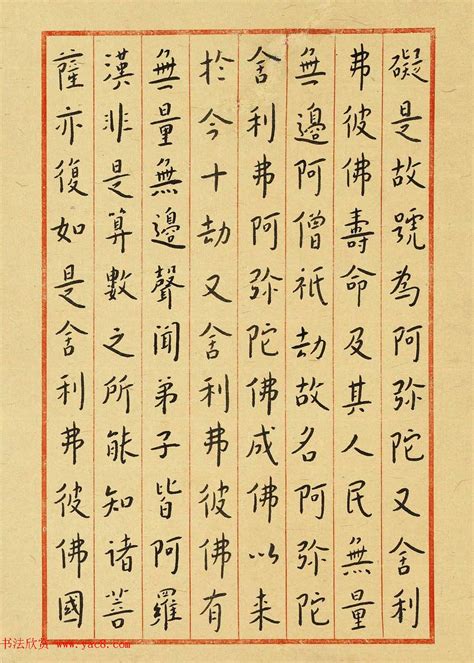 礙是故號為阿弥陀又舍利
弗彼佛壽命及其人民無量
無邊阿僧祇劫故名阿弥陀
舍利弗阿弥陀佛成佛以来
於今十劫又舍利弗彼佛有
無量無邊聲聞弟子皆阿羅
漢非是算數之所能知諸菩
薩亦復如是舍利弗彼佛國
书法欣赏 www.yac8.com